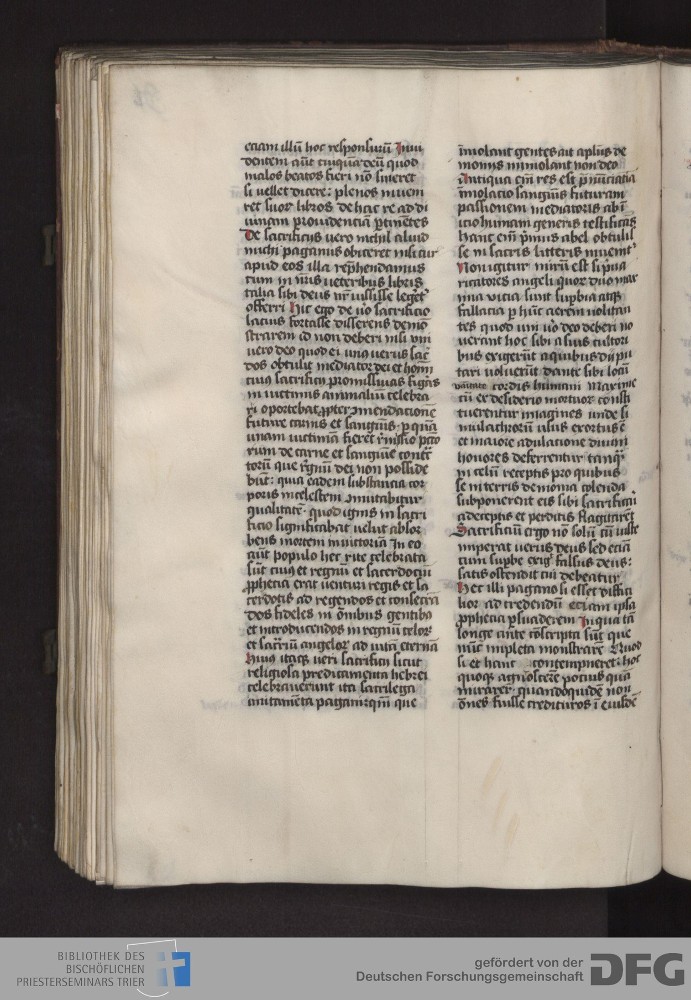 eciam illū hoc responsurū Inui
dentem aūt cuiquā deū quod
malos beatos fieri nō sineret
si uellet dicere: plenos inueni
ret suor libros de hac re ad di
uinam prouidenciā ptinētes
De sacrificijs uero nichil aliud
michi paganus obiceret nisi cur
apud eos illa rephendamus
cum in nris ueteribus libris
talia sibi deus nr iussisse leget
offerri Hic ego de uo sacrificio
lacius fortasse disserens demō
strarem id non deberi nisi vni
uero deo quod ei unꝯ uerus sac
dos obtulit mediator dei et homi
cuiꝯ sacrificij promissiuas figas
in uictimis animaliū celebra
ri oportebat ꝓpter ꝯmendacionē
future carnis et sanguīs p quā
unam uictimā fieret rmissio pcco
rum de carne et sanguine contc
torū que rgnū dei non posside
būt: quia eadem substancia cor
poris in celestem ꝯmutabitur
qualitatē quod ignis in sacri
ficio significabat uelut absor
bens mortem in uictoriā In eo
aūt populo hec rite celebrata
sūt cuiꝯ et regnū et sacerdociū
ꝓphecia erat uenturi regis et sa
cerdotis ad regendos et consecra
dos fideles in ōmibus gentibꝯ
et introducendos in regnū celor
et sacriū angelor ad uitā eternā
Huius itaqꝫ ueri sacrificij sicut
religiosa predicamenta hebrei
celebrauerunt ita sacrilega
imitamēta paganiqm que
īmolant gentes ait aplus de
monijs inmolant non deo
Antiqua em res est pnunciatiā
īmolacio sanguīs futuram
passionem mediatoris ab i
icio humani generis testificās
hanc em pmus abel obtulis
se in sacris litteris inuenit
Non igitur mirū est si pua
ricatores angeli quor duo max
ima uicia sunt supbia atqꝫ
fallacia p hūc aerem uolitan
tes quod uni uo deo deberi no
uerant hoc sibi a suis cultori
bus exigerūt a quibus dij pu
tari uoluerūt dante sibi locū
vanitate cordis humani maxime
cū ex desiderio mortuor consti
tuerentur imagines unde si
mulachrorū usus exortus ē
et maiore adulacione diuini
honores deferrentur tanqꝫ
in celū receptis pro quibus
se in terris demonia colenda
subponerent eis sibi sacrificari
a deceptis et perditis flagitarēt
Sacrificiū ergo nō solū cū iuste
imperat uerus deus sed eciā
cum supbe exigt falsus deus:
satis ostendit cui debeatur
Hec illi pagano si esset diffici
lior ad credendū eciam ipsa
ꝓphecia psuaderem In qua tā
longe ante cōscripta sūt que
nūc impleta monstrare Quod
si et hanc contempneret: hoc
quoqꝫ agnoscere pocius quā
mirarer quandoquidē non
ōnes fuisse credituros ī eiusdē
BIBLIOTHEK DES
BISCHÖFLICHEN
PRIESTERSEMINARS TRIER
gefördert von der
Deutschen Forschungsgemeinschaft
DFG